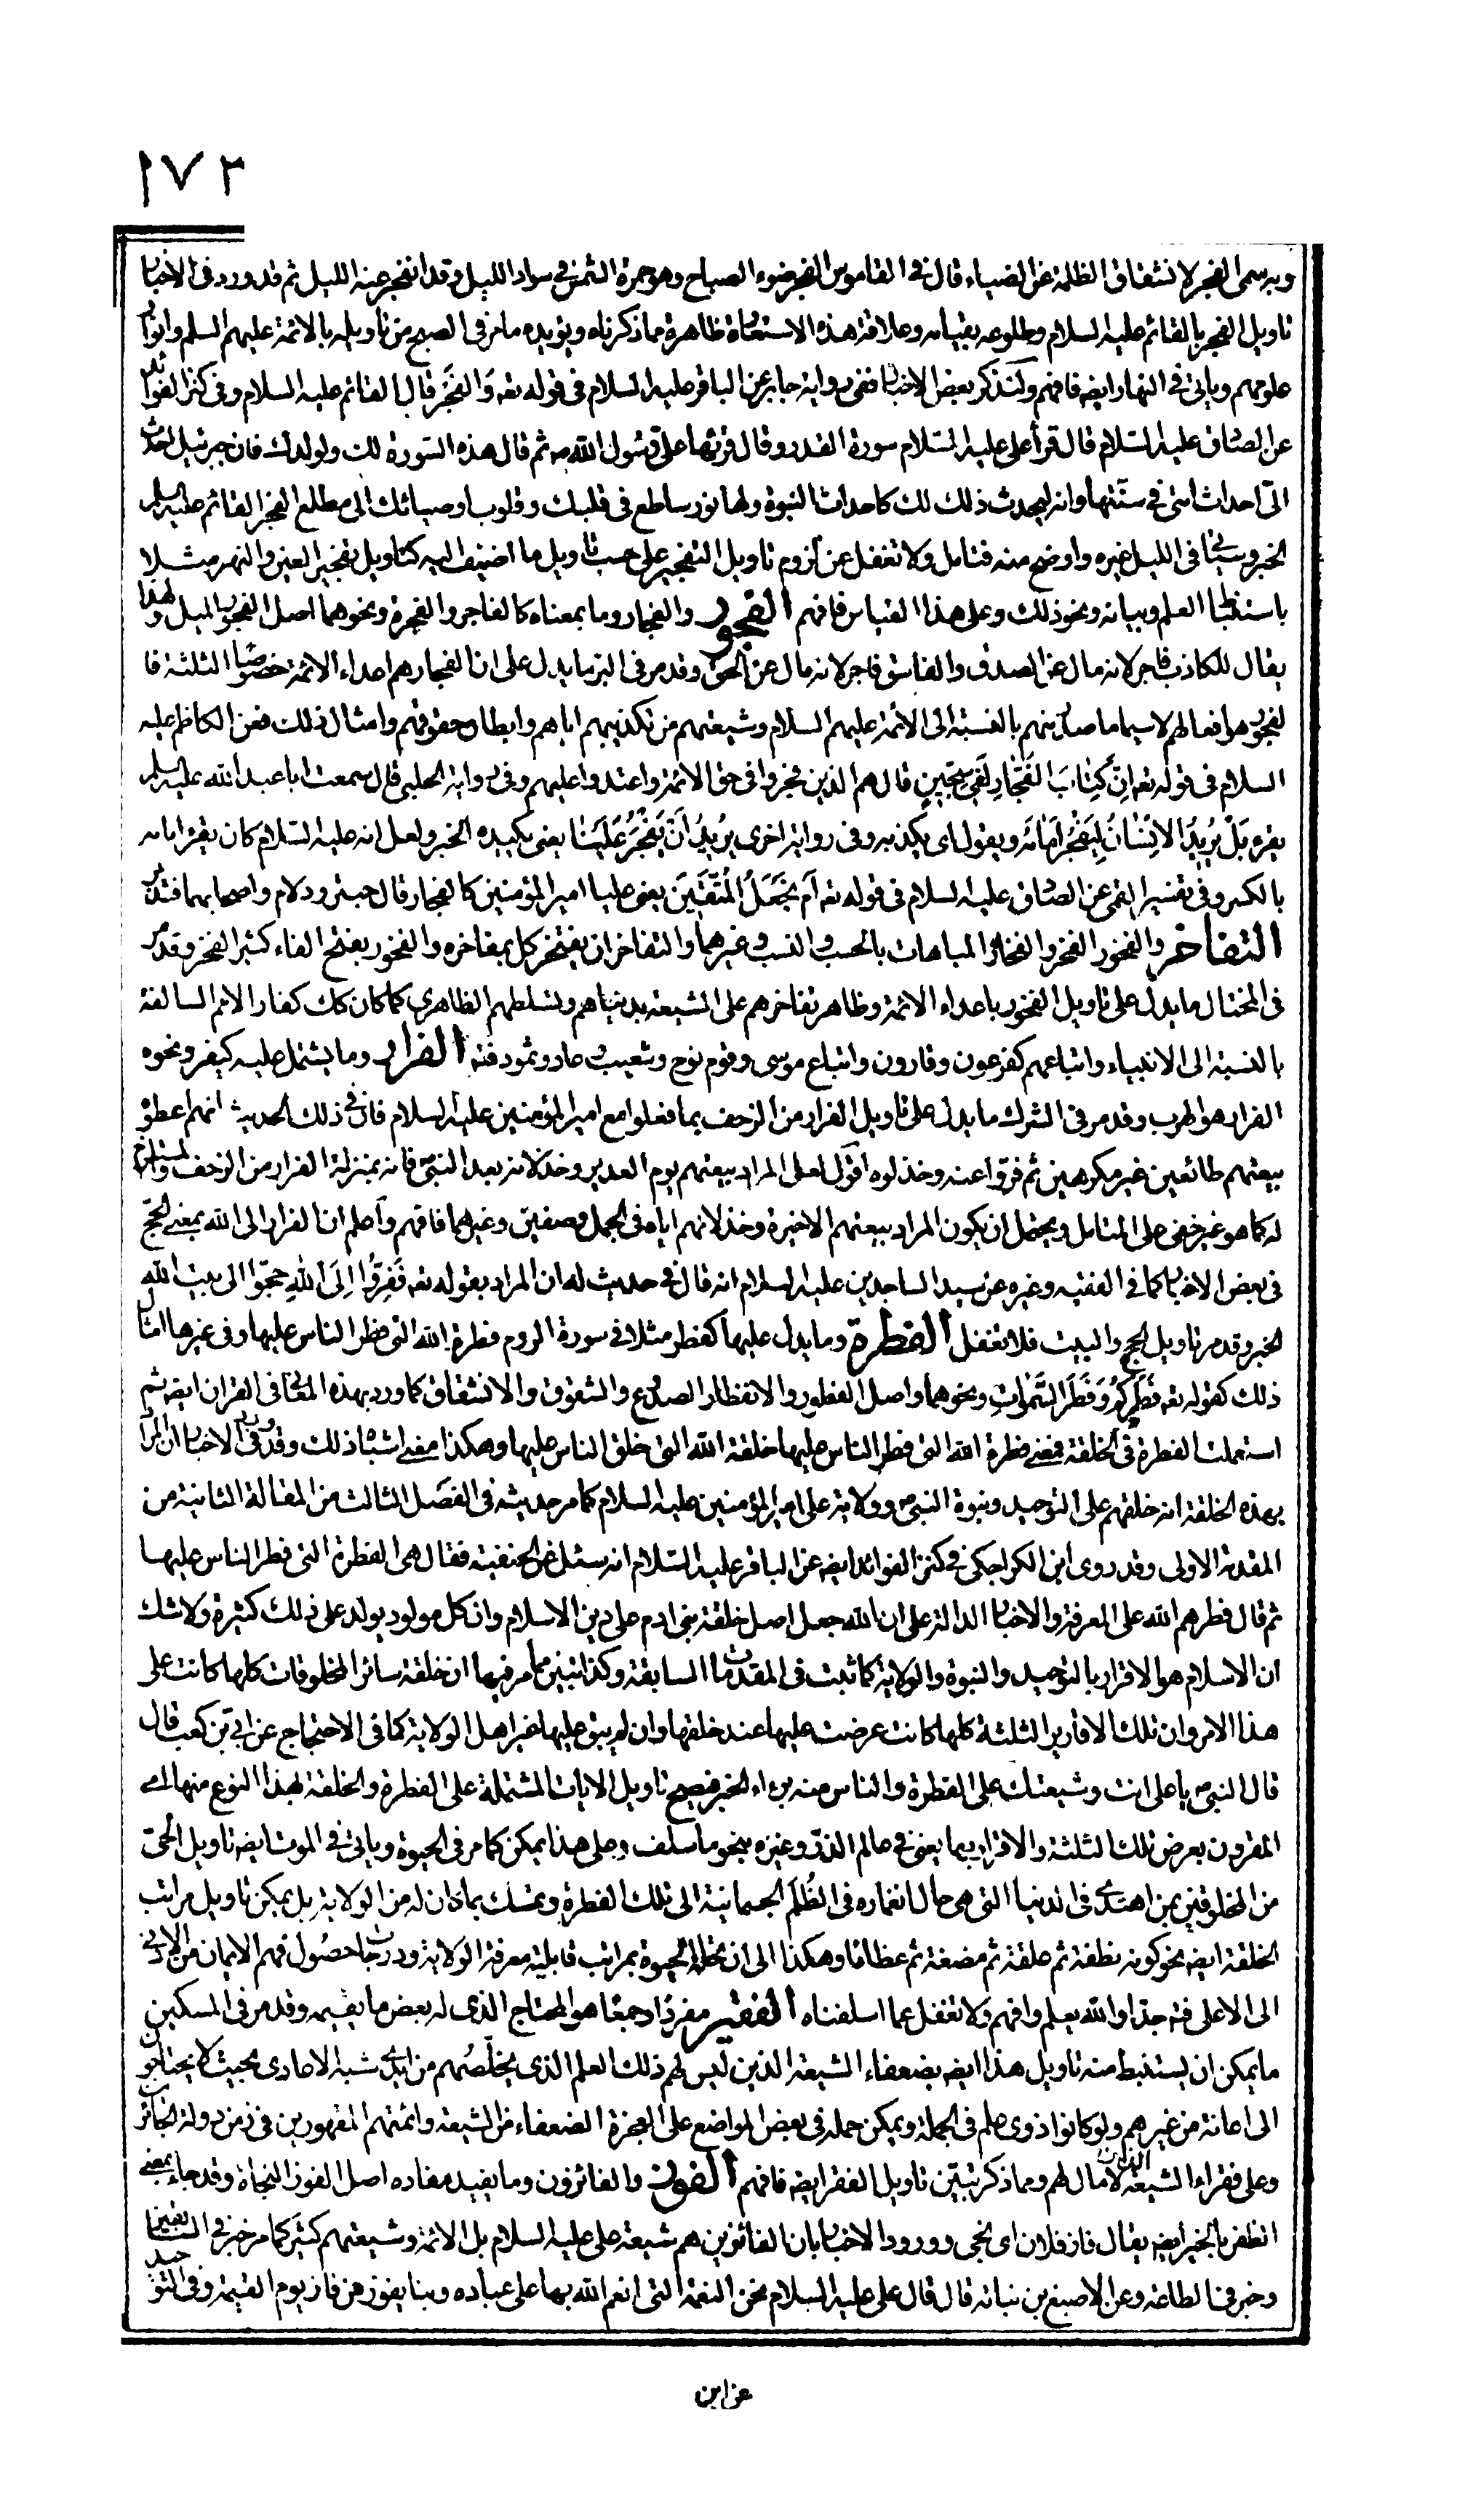 ١٧٢
وبه سمى الفجر لانشقاق الظلمة عن الضياء قال في القاموس الفجر ضوء الصباح وهو حمرة الشمس في سواد الليل وقد انفجر عنه الليل ثم قد ورد في الاخبار
تاويل الفجر بالقائم عليه السلام وطلوعه بقيامه وعلاقة هذه الاستعارة ظاهرة مما ذكرناه ويؤيده ما مر في الصبح من تاويله بالائمة عليهم السلم وانوار
علومهم وياتي في النهار ايضه فافهم ولنذكر بعض الاخبار ففي رواية جابر عن الباقر عليه السلام في قوله تعه وَالْفَجْرِ قال القائم عليه السلام وفي كنز الفوائد
عن الصادق عليه السلام قال قرأ علي عليه السلام سورة القدر وقال قرئها علي رسول الله ص ثم قال هذه السورة لك ولولدك فان جبرئيل احدث
الي احداث امتي في سنتها وانه ليحدث ذلك لك كاحداث النبوة ولها نور ساطع في قلبك وقلوب اوصيائك الى مطلع الفجر القائم عليه السلم
الخبر وسياتي في الليل غيره واوضح منه فتامل ولا تغفل عن لزوم تاويل التفجير على حسب تاويل ما اضيف اليه كتاويل تفجير العين والنهر مثلا
باستنباط العلم وبيانه ونحو ذلك وعلى هذا القياس فافهم الفجور والفجار وما بمعناه كالفاجر والفجرة ونحوهما اصل الفجور الميل ولهذا
يقال للكاذب فاجر لانه مال عن الصدق والفاسق فاجر لانه مال عن الحق وقد مر في البر ما يدل على ان الفجار هم اعداء الائمة خصوصا الثلثة فا
لفجور هو افعالهم لاسيما ما صدر منهم بالنسبة الى الأئمة عليهم السلام وشيعتهم من تكذيبهم اياهم وابطال حقوقهم وامثال ذلك فعن الكاظم عليه
السلام في قوله تعه اِنَّ كِتَابَ الفُجَّارِ لَفِي سِجِّينٍ قال هم الذين فجروا في حق الائمة واعتدوا عليهم وفي رواية الحلبي قال سمعت ابا عبد الله عليه السلم
يقرء بَلْ يُرِيدُ الاِنْسَانُ لِيَفْجُرَ اَمَامَهُ ويقول اى يكذبه وفي رواية اخرى يُرِيدُ اَنْ يَفْجُرَ عَلَيْنَا يعني يكيده الخبر ولعل انه عليه السلام كان يقرء امامه
بالكسر وفي تفسير القمي عن الصادق عليه السلام في قوله تعه اَمْ نَجْعَلُ المُتَّقِينَ يعني عليا امير المؤمنين كالفجار قال حبتر ودلام واصحابهما فتدبر
التفاخر والفخور الفخر والفخار المباهات بالحسب والنسب وغيرهما والتفاخر ان يفتخر كل بمفاخره والفخور بفتح الفاء كثير الفخر وقد مر
في المختال ما يدل على تاويل الفخور باعداء الائمة وظاهر تفاخرهم على الشيعة بدنياهم وتسلطهم الظاهري كما كان كك كفار الامم السالفة
بالنسبة الى الانبياء واتباعهم كفرعون وقارون واتباع موسى وقوم نوح وشعيب وعاد وثمود فته الفرار وما يشتمل عليه كيفر ونحوه
الفرار هو الهرب وقد مر في الشرك ما يدل على تاويل الفرار من الزحف بما فعلوا مع امير المؤمنين عليه السلام قال في ذلك الحديث انهم اعطوه
بيعتهم طائعين غير مكرهين ثم فروا عنه وخذلوه اقول لعل المراد بيعتهم يوم الغدير وخذلانه بعد النبي فانه بمنزلة الفرار من الزحف والمستلزم
له كما هو غير خفي على المتامل ويحتمل ان يكون المراد بيعتهم الاخيرة وخذلانهم اياه في الجمل وصفين وغيرهما فافهم واعلم ان الفرار الى الله بمعنى الحج
في بعض الاخبار كما في الفقيه وغيره عن سيد الساجدين عليه السلام انه قال في حديث له ان المراد بقوله تعه فَفِرُّوا اِلَى اللهِ حجوا الى بيت الله
الخبر وقد مر تاويل الحج والبيت فلا تغفل الفطرة وما يدل عليها كفطر مثلا في سورة الروم فطرة الله التي فطر الناس عليها وفي غيرها امثال
ذلك كقوله تعه فَطَرَكُمْ وَفَطَرَ السَّمَوَاتِ ونحوهما واصل الفطور والانفطار الصدوع والشقوق والانشقاق كما ورد بهذه المعاني في القران ايضه ثم
استعملت الفطرة في الخلقة فمعنى فطرة الله التي فطر الناس عليها خلقة الله التي خلق الناس عليها وهكذا معنى اشباه ذلك وقد ورد في الاخبار ان المراد
بهذه الخلقة انه خلقهم على التوحيد ونبوة النبي ص وولاية علي امير المؤمنين عليه السلام كما مر حديثه في الفصل الثالث من المقالة الثانية من
المقدمة الاولى وقد روى ابن الكراجكي في كنز الفوائد ايضه عن الباقر عليه السلام انه سئل عن الحنفية فقال هي الفطرة التي فطر الناس عليها
ثم قال فطرهم الله على المعرفة والاخبار الدالة على ان الله جعل اصل خلقة بني ادم على دين الاسلام وان كل مولود يولد على ذلك كثيرة ولا شك
ان الاسلام هو الاقرار بالتوحيد والنبوة والولاية كما ثبت في المقدمات السابقة وكذا تبين مما مر فيها ان خلقة سائر المخلوقات كلها كانت على
هذا الامر وان تلك الاقارير الثلثة كلها كانت عرضت عليها عند خلقها وان لم يبق عليها غير اهل الولاية كما في الاحتجاج عن ابي بن كعب قال
قال النبي ص يا علي انت وشيعتك على الفطرة والناس منه برءاء الخبر فيصح تاويل الايات المشتملة على الفطرة والخلقة بهذا النوع منها اى
المقرون بعرض تلك الثلثة والاقرار بها يعني في عالم الذر وغيره بنحو ما سلف وعلى هذا يمكن كما مر في الحيوة وياتي في الموت ايضه تاويل الحي
من المخلوقين بمن اهتدى في الدنيا التي هي حال انغماره في الظُّلَمِ الجسمانية الى تلك الفطرة وتمسك بما دان له من الولاية بل يمكن تاويل مراتب
الخلقة ايضه نحو كونه نطفة ثم علقة ثم مضغة ثم عظاما وهكذا الى ان تحله الحيوة بمراتب قابلية معرفة الولاية ودرجات حصول فهم الايمان من الادنى
الى الاعلى فته جدا والله يعلم وافهم ولا تغفل عما اسلفناه الفقير مفردا وجمعا هو المحتاج الذي له بعض ما يقيمه وقد مر في المسكين
ما يمكن ان يستنبط منه تاويل هذا ايضه بضعفاء الشيعة الذين ليس لهم ذلك العلم الذي يخلصهم من ايدى شبه الاعادى بحيث لا يحتاجون
الى اعانة من غيرهم ولو كانوا ذوى علم في الجملة ويمكن حمله في بعض المواضع على العجزة الضعفاء من الشيعة وائمتهم المقهورين في زمن دولة الجبائر
وعلى فقراء الشيعة الذين لا مال لهم ومما ذكر تبين تاويل الفقر ايضه فافهم الفوز والفائزون وما يفيد مفاده اصل الفوز النجاة وقد جاء بمعنى
الظفر بالخير ايضه يقال فاز فلان اى نجى وورود الاخبار بان الفائزين هم شيعة علي عليه السلام بل الائمة وشيعتهم كثير كما مر خبر في السابقين
وخبر في الطاعة وعن الاصبغ بن نباتة قال قال علي عليه السلام نحن النعمة التي انعم الله بها على عباده وبنا يفوز من فاز يوم القيمة وفي التوحيد
عن ابن